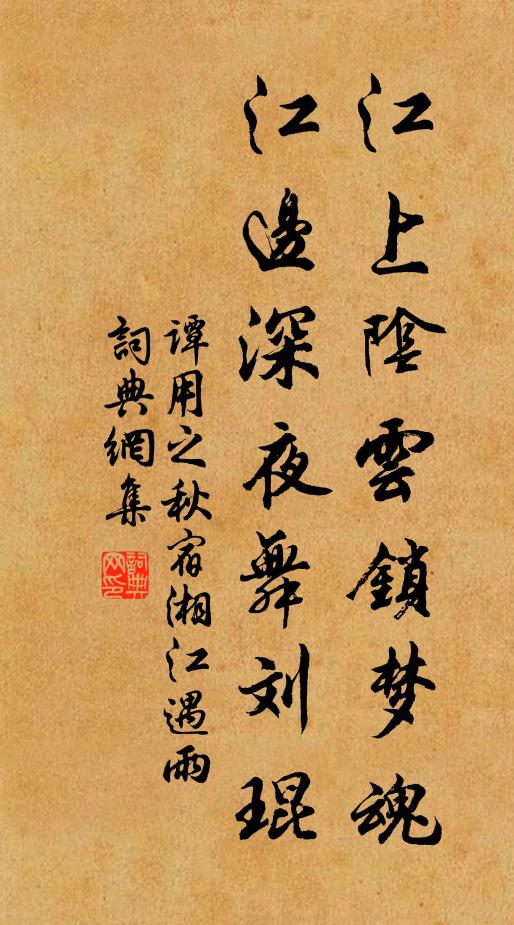 江上陰雲鎖梦魂
江邊深夜舞刘琨
谭用之秋宿湘江遇雨
詞典網集
詞典
网印